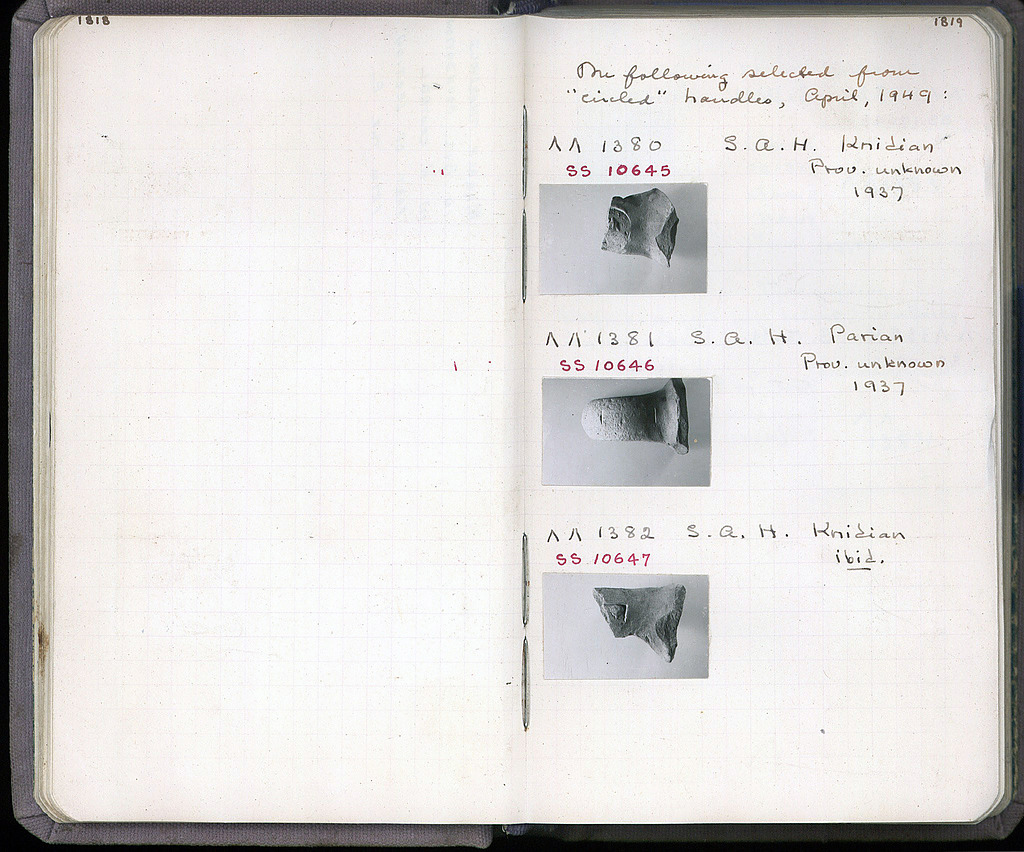 1818
1819
The following selected from
"circled" handles, April, 1949:
ΛΛ 1380 S.A.H. Knidian
SS 10645 Prov. unknown
1937
ΛΛ 1381 S.A.H. Parian
SS 10646 Prov. unknown
1937
ΛΛ 1382 S.A.H. Knidian
SS 10647 ibid.